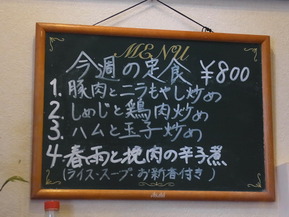 MENU
今週の定食 ¥800
1. 豚肉とニラもやし炒め
2. しめじと鶏肉炒め
3. ハムと玉子炒め
4 春雨と挽肉の辛子煮
(ライス・スープ・お新香付き)